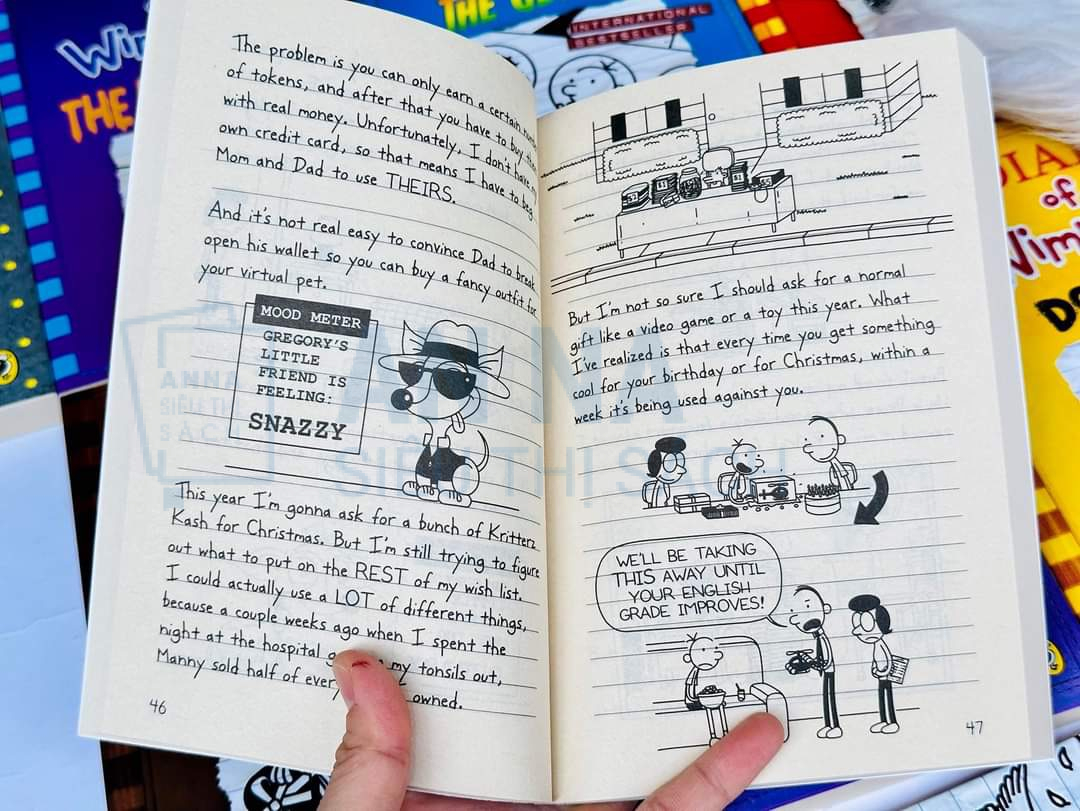 The problem is you can only earn a certain
of tokens, and after that you have to buy
with real money. Unfortunately, I don't have my
own credit card, so that means I have to beg
Mom and Dad to use THEIRS.
And it's not real easy to convince Dad to break
open his wallet so you can buy a fancy outfit for
your virtual pet.
MOOD METER
GREGORY'S
LITTLE
FRIEND IS
FEELING:
SNAZZY
This year I'm gonna ask for a bunch of Kritterz
Kash for Christmas. But I'm still trying to figure
out what to put on the REST of my wish list.
I could actually use a LOT of different things,
because a couple weeks ago when I spent the
night at the hospital my tonsils out,
Manny sold half of owned.
46
But I'm not so sure I should ask for a normal
gift like a video game or a toy this year. What
I've realized is that every time you get something
cool for your birthday or for Christmas, within a
week it's being used against you.
WE'LL BE TAKING
THIS AWAY UNTIL
YOUR ENGLISH
GRADE IMPROVES!
47
THE
INTERNATIONAL
BESTSELLER
THE
of a
ANNA
SIÊU THỊ SÁCH
ANNA
SIÊU THỊ
SÁCH